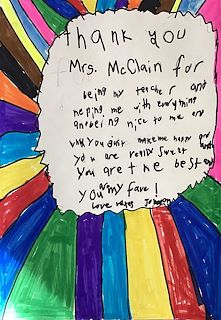 Thank you
Mrs. McClain for
being my teacher and
helping me with everything
and being nice to me and
you just make me happy and
you are really sweet and
You are the best and
you my fave!
Love